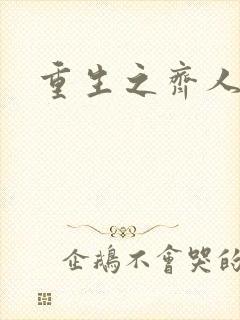 重生之齊人
企鵝不會哭的